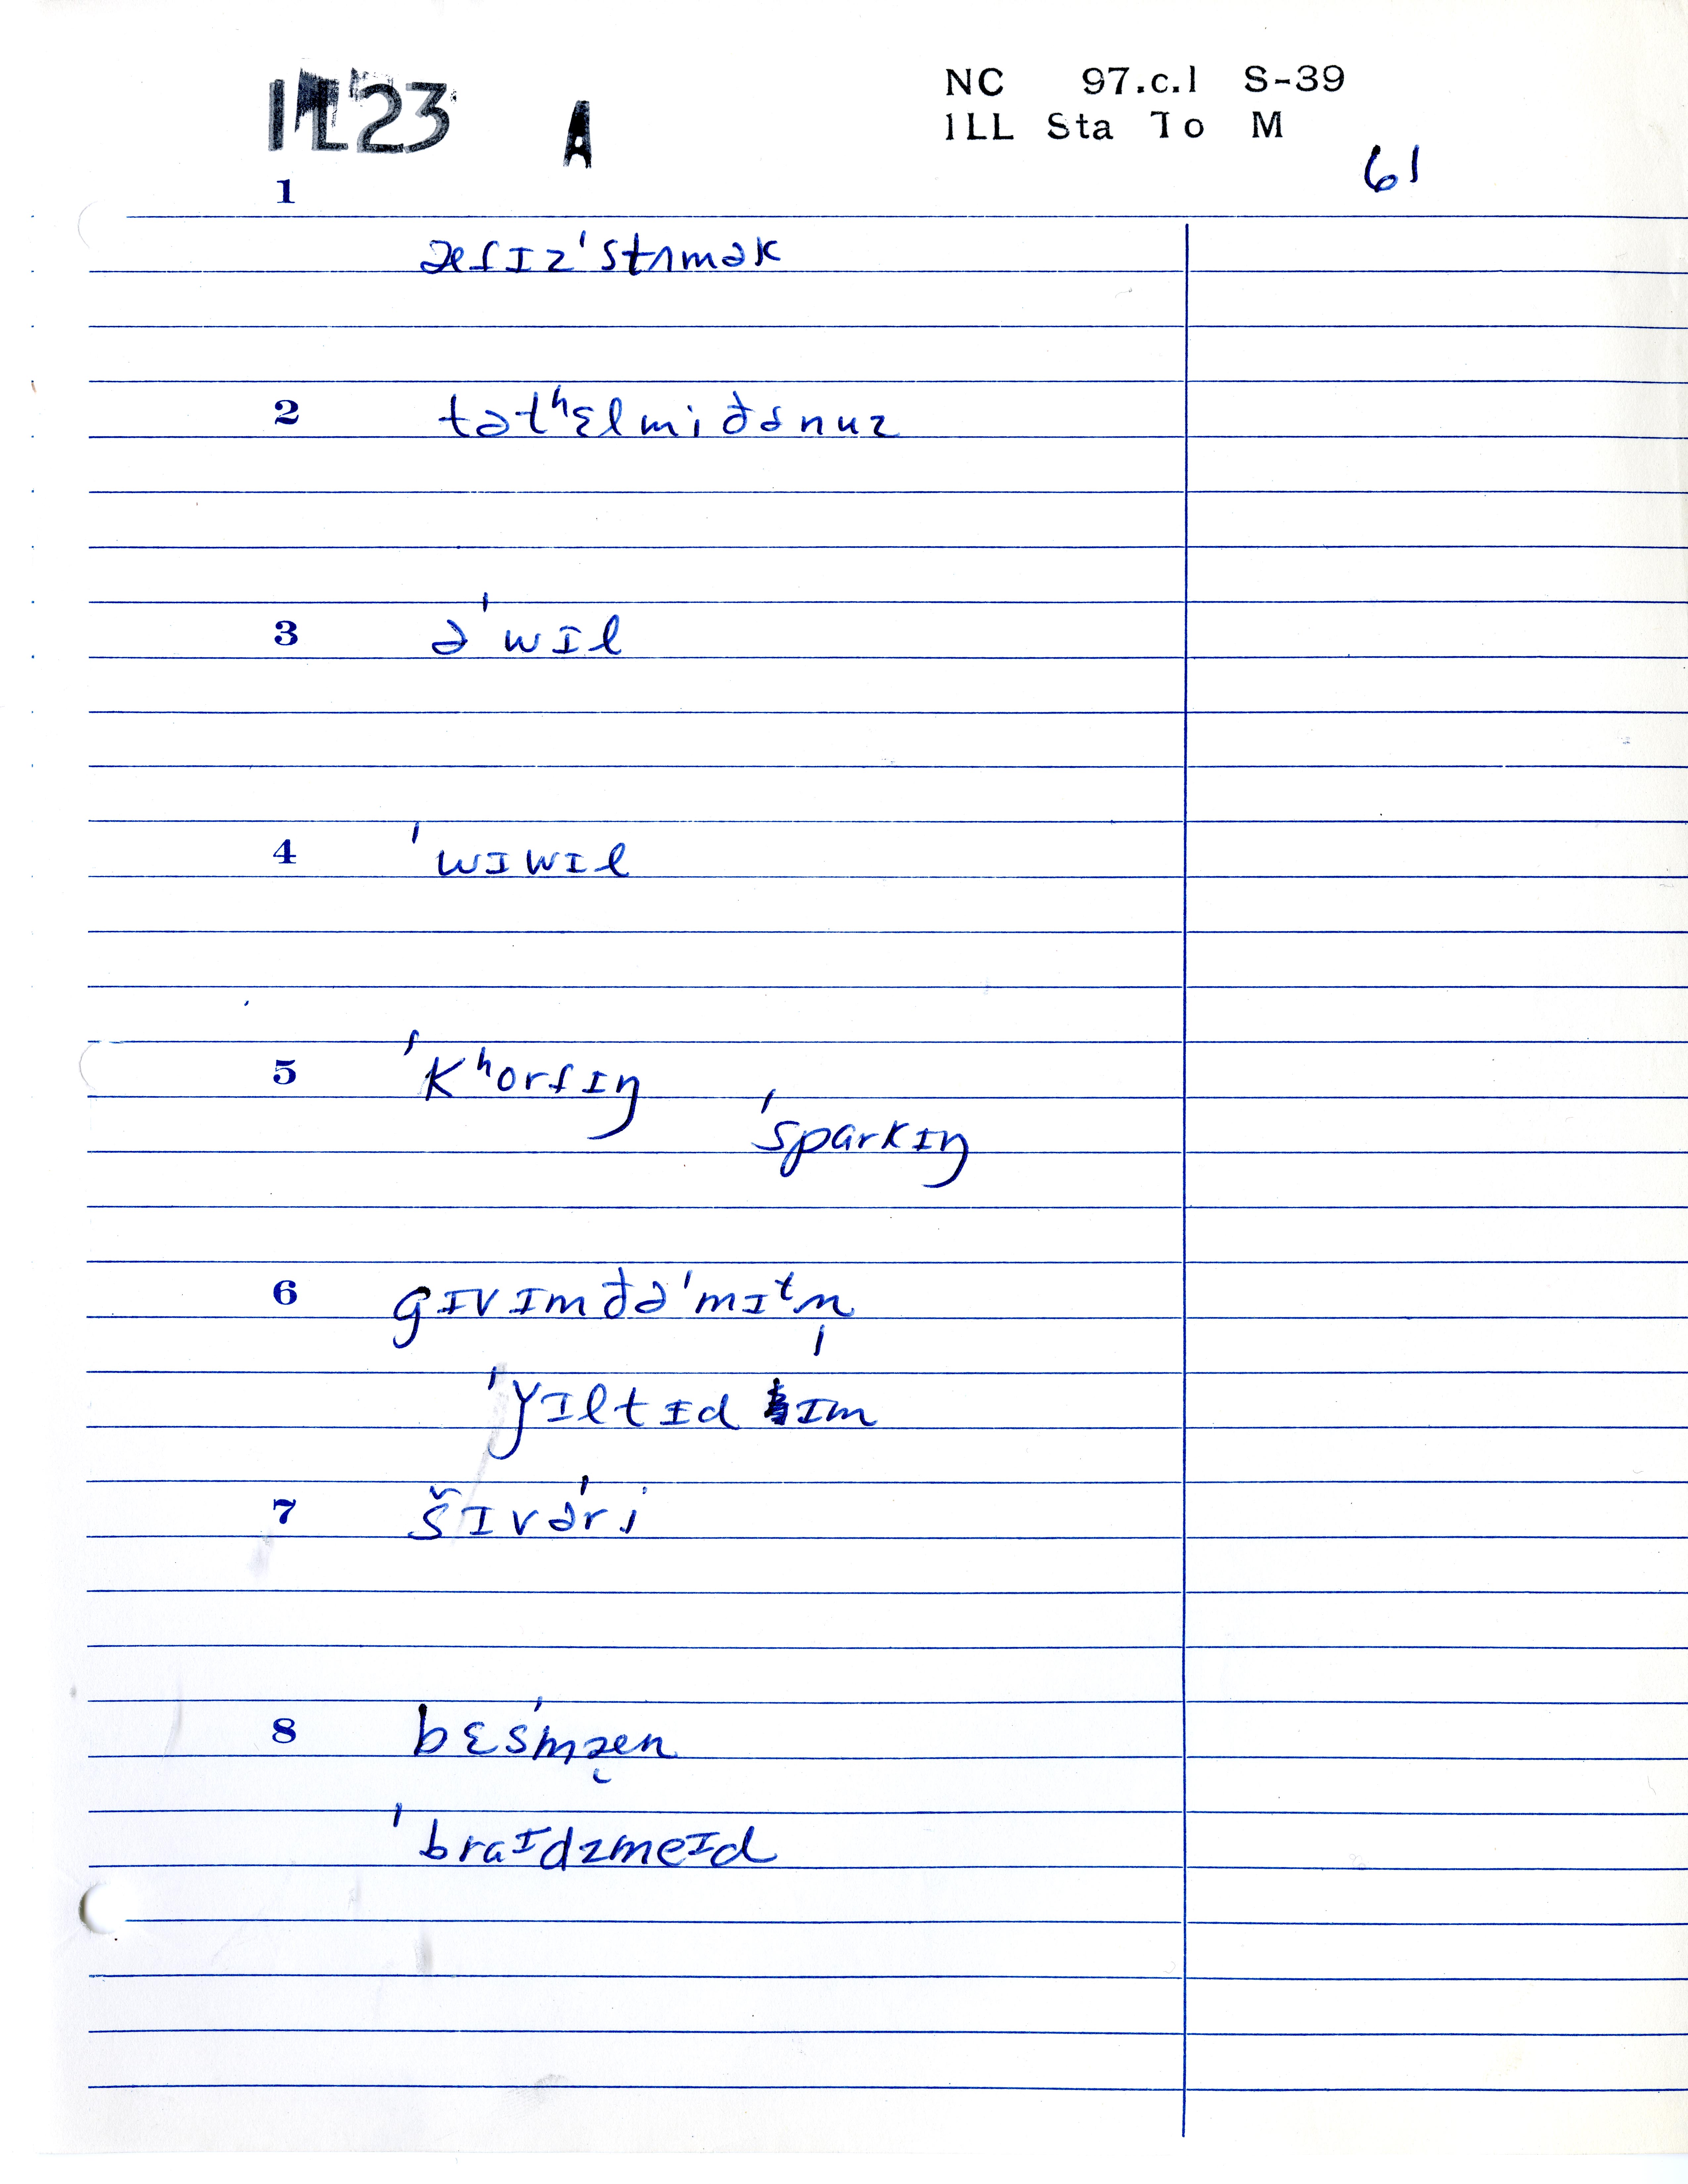 IL23 A
NC 97.c.1 S-39
ILL Sta To M
61
1
æfɪz'stʌmək
2
tətʰɛlmiðənuz
3
ə'wɪl
4
'wɪwɪl
5
'Kʰorfɪŋ
'sparkɪŋ
6
gɪvɪmðə'mɪᵗn̩
'yɪltɪd ɪm
7
šɪvə'ri
8
bɛs'mæn
'braɪdzmeɪd